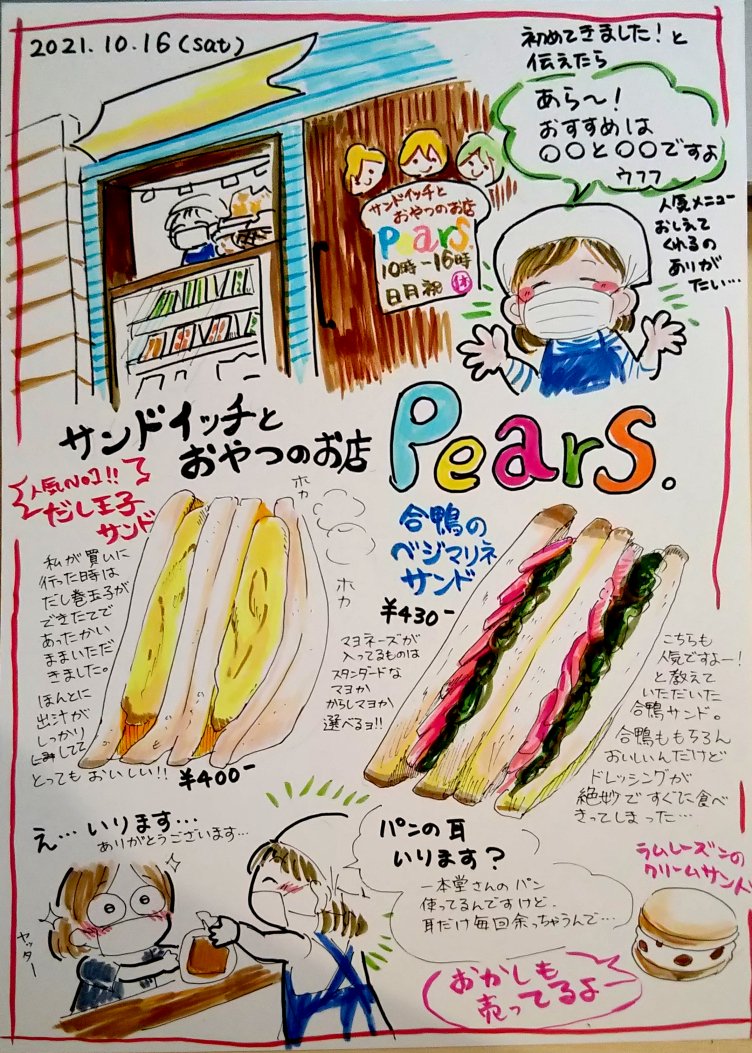 2021.10.16(sat)
初めてきました!と
伝えたら
あら〜!
おすすめは
○○と○○ですよ
ウフフ
人気メニュー
おしえて
くれるの
ありが
たい…
サンドイッチと
おやつのお店
Pears.
10時ー16時
日月祝
休
サンドイッチと
おやつのお店
Pears.
人気No1!!
だし玉子
サンド
私が買いに
行った時は
だし巻玉子が
できたてで
あったかい
ままいただ
きました。
ほんとに
出汁が
しっかり
しみてて
とってもおいしい!!
¥400-
ホカ
ホカ
合鴨の
ベジマリネ
サンド
¥430-
マヨネーズが
入ってるものは
スタンダードな
マヨか
からしマヨか
選べるヨ!!
こちらも
人気ですよー!
と教えて
いただいた
合鴨サンド。
合鴨ももちろん
おいしいんだけど
ドレッシングが
絶妙ですぐに食べ
きってしまった…
え…いります…
ありがとうございます…
ヤッター
パンの耳
いります?
一本堂さんのパン
使ってるんですけど、
耳だけ毎回余っちゃうんで…
おかしも
売ってるよ
ラムレーズンの
クリームサンド